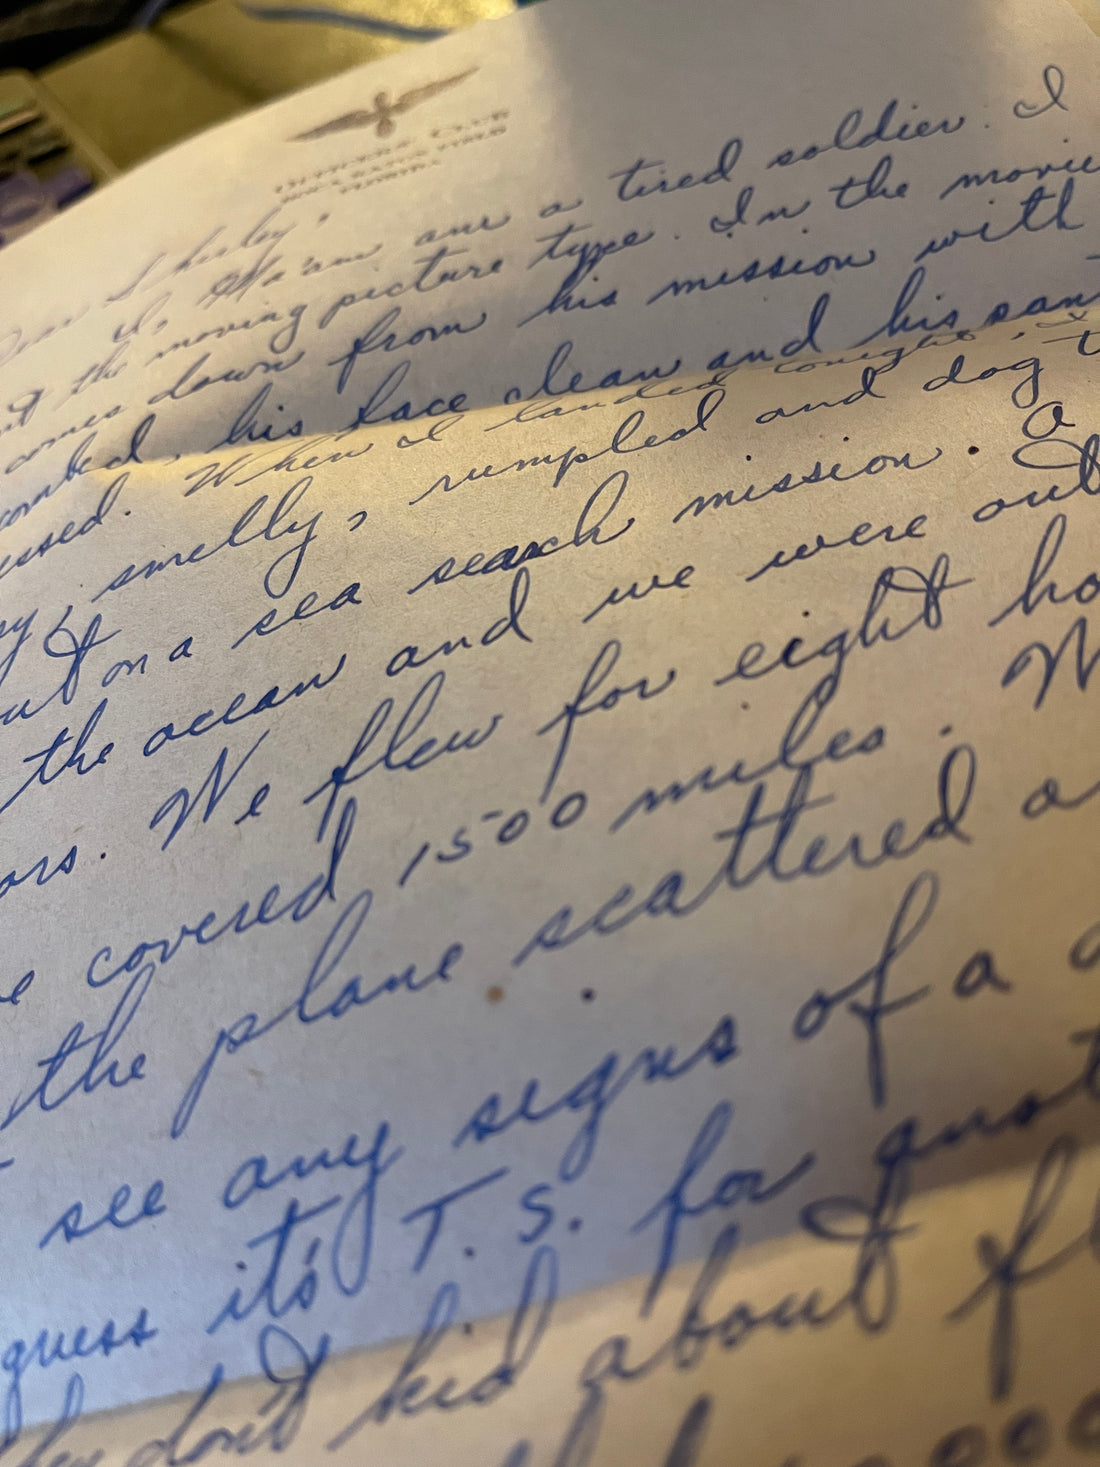 OFFICERS CLUB
BOCA RATON FIELD
FLORIDA
Dear Shirley,
I, Ma'am am a tired soldier. I
the moving picture type. In the movie
comes down from his mission with
combed, his face clean and his
When I landed tonight, I
smelly, rumpled and dog
out on a sea search mission. A
the ocean and we were out
We flew for eight
covered 1500 miles.
the plane scattered
see any signs of a
guess it's T. S. for
They don't kid about